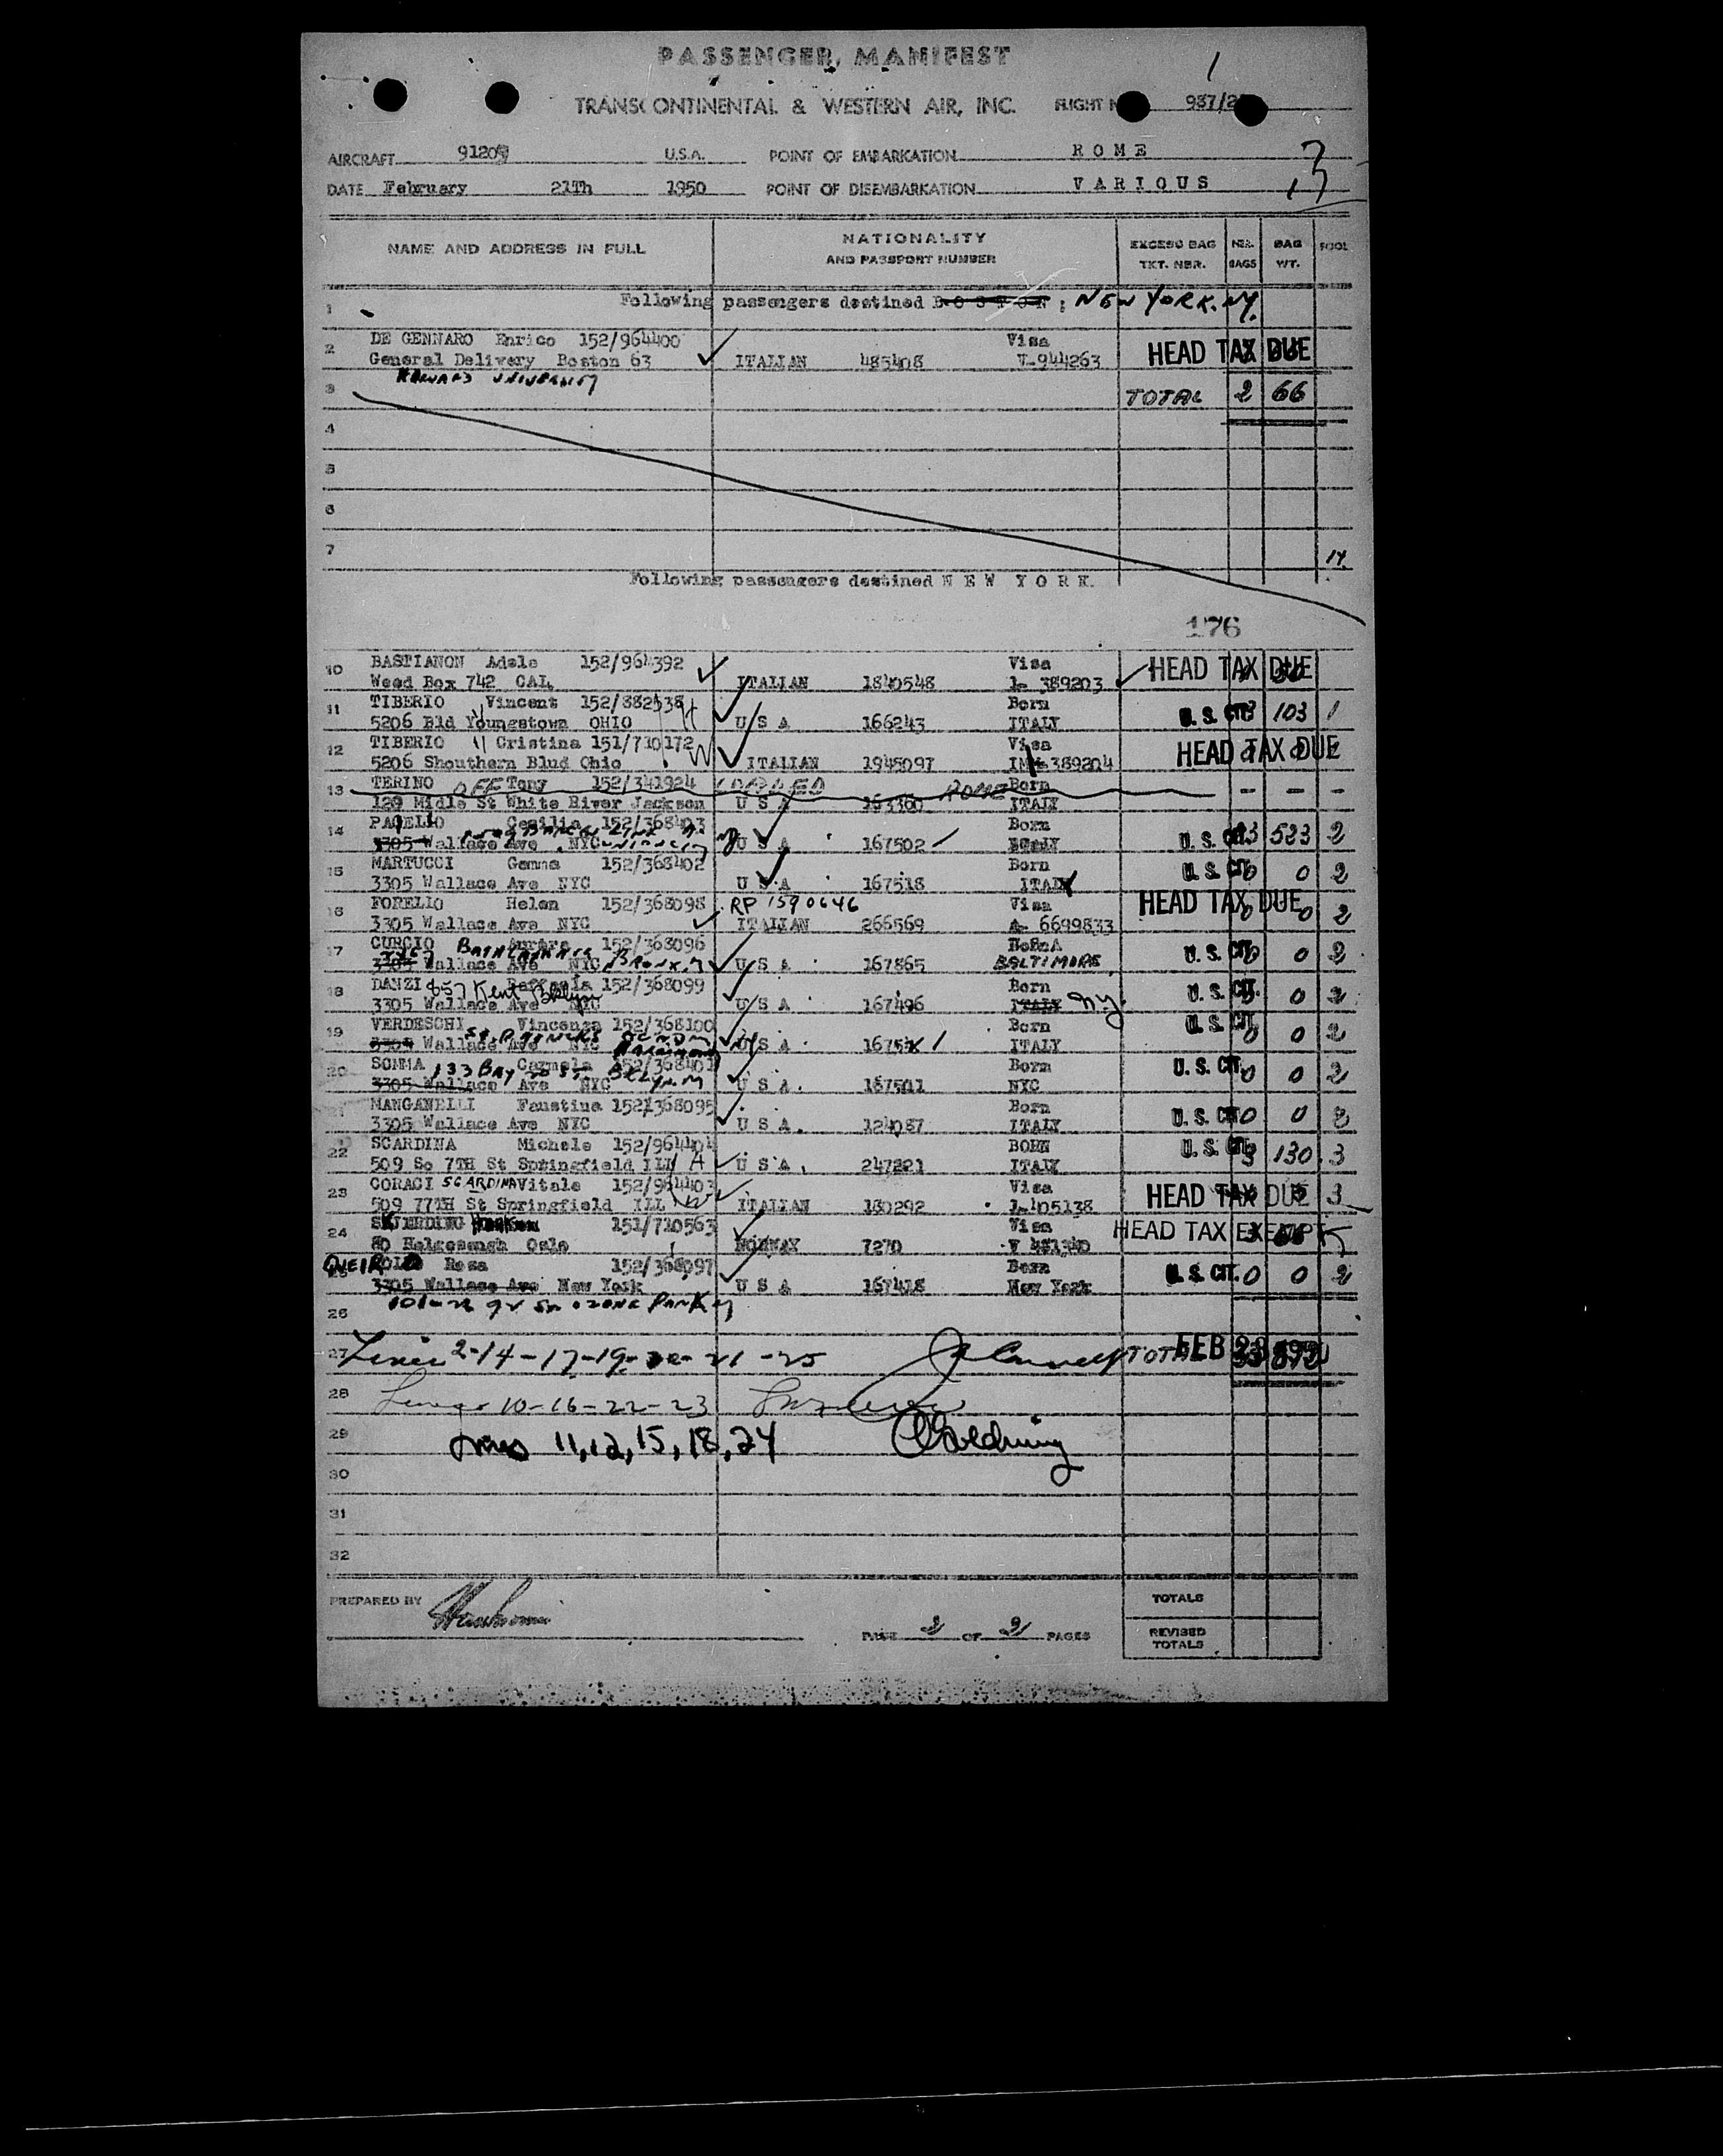 PASSENGER MANIFEST
1
TRANSCONTINENTAL & WESTERN AIR, INC. FLIGHT 937/2
AIRCRAFT 91209 U.S.A. POINT OF EMBARKATION ROME
DATE February 21Th 1950 POINT OF DISEMBARKATION VARIOUS
NAME AND ADDRESS IN FULL NATIONALITY AND PASSPORT NUMBER EXCESS BAG TKT. NBR. NBR. BAGS BAG WT. POOL
1 Following passengers destined BOSTON : NEW YORK. NY.
2 DE GENNARO Enrico 152/964400 Visa
General Delivery Boston 63 ITALIAN 485408 V-944263 HEAD TAX DUE
HARVARD UNIVERSITY
3 TOTAL 2 66
4
5
6
7 14
Following passengers destined NEW YORK.
176
10 BASTIANON Adele 152/964392 Visa HEAD TAX DUE
Weed Box 742 CAL. ITALIAN 1840548 I- 389203
11 TIBERIO Vincent 152/882538 Born
5206 Bld Youngstown OHIO U S A 166243 ITALY U.S. CIT. 103 1
12 TIBERIO Cristina 151/710172 Visa HEAD TAX DUE
5206 Shouthern Blud Ohio ITALIAN 1945097 IM 389204
13 TERINO OFF Tony 152/341924 LOADED ROME Born - - -
129 Midle St White River Jackson U S A 163360 ITALY
14 PAGELLO Cecilia 152/368403 Born
3305 Wallace Ave NYC U S A 167502 ITALY U.S. CIT. 523 2
15 MARTUCCI Gemma 152/368402 Born U.S. CIT.
3305 Wallace Ave NYC U S A 167518 ITALY 0 2
16 FORELIO Helen 152/368098 RP 1590646 Visa HEAD TAX DUE
3305 Wallace Ave NYC ITALIAN 266569 A- 6699833 0 2
17 CURCIO Aurora 152/368096
3305 Wallace Ave NYC BRONX U S A 167865 BALTIMORE U.S. CIT. 0 2
18 DANZI 857 Kent Bklyn 152/368099 Born U.S. CIT.
3305 Wallace Ave NYC U S A 167496 ITALY N.Y. 0 2
19 VERDESCHI Vincenza 152/368100 Born U.S. CIT.
3305 Wallace Ave NYC U S A ITALY 0 0 2
20 SOMMA Carmela 152/368401 133 BAY 20 ST. BKLYN Born U.S. CIT.
3305 Wallace Ave NYC U S A. 167511 NYC 0 0 2
21 MANGANELLI Faustina 152/368095 Born
3305 Wallace Ave NYC U S A. 124087 ITALY U.S. CIT. 0 0 2
22 SCARDINA Michele 152/964404 BORN U.S. CIT.
509 So 7TH St Springfield ILL U S A. 247221 ITALY 3 130 3
23 CORACI SCARDINA Vitale 152/964403 Visa
509 77TH St Springfield ILL ITALIAN 180292 I-405138 HEAD TAX DUE 3
24 151/710563 Visa HEAD TAX EXEMPT
80 Oslo NORWAY 7270
QUEIROLO Rosa 152/368097 Born
25 3305 Wallace Ave New York U S A 167418 New York U.S. CIT. 0 0 2
26 OZONE PARK
27 Lines 2-14-17-19-20-21-25 TOTAL FEB
28 Lines 10-16-22-23
29 Lines 11,12,15,18,24 Goldring
30
31
32
PREPARED BY
TOTALS
PAGE 2 OF 2 PAGES
REVISED TOTALS